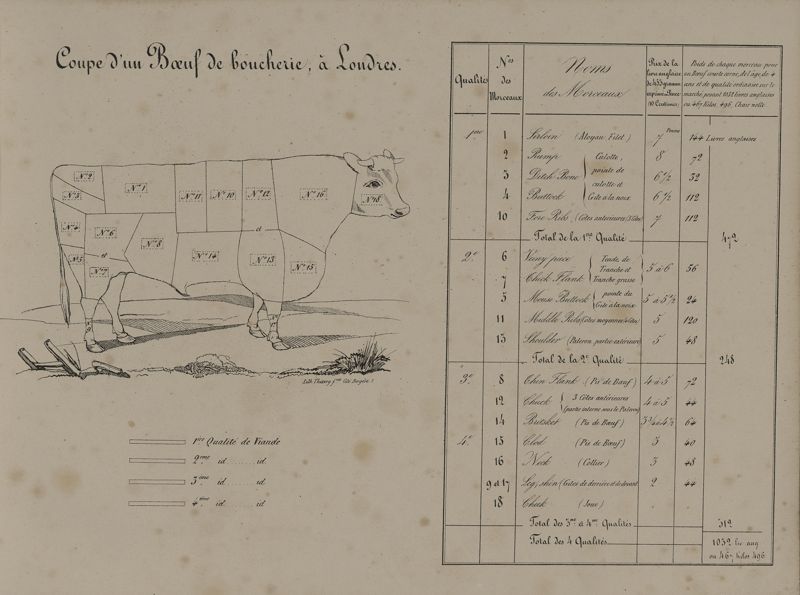 Coupe d'un Bœuf de boucherie, à Londres.
N° 2
N° 1
N° 3
N° 11
N° 10
N° 12
N° 16
N° 18
N° 4
N° 6
et
N° 8
et
N° 5
et
N° 7
N° 14
N° 13
N° 15
Lith. Thierry f.res Cité Bergère 1
1ère Qualité de Viande
2ème id ...... id
3ème id ...... id.
4ème id ...... id
Qualités
Nos des Morceaux
Noms des Morceaux
Prix de la livre anglaise de 453 grammes
10 Centimes
Poids de chaque morceau pour
un Bœuf courte corne, de l'âge de 4
ans et de qualité ordinaire sur le
marché, pesant 1032 livres anglaises
ou 467 Kilos, 496, Chair nette.
1ère 1 Sirloin (Aloyau, Filet) 7 Pence 144 Livres anglaises
2 Rump Calotte, 8 72
3 Detch Bone pointe de culotte et 6 1/2 32
4 Buttock Gîte à la noix 6 1/2 112
10 Fore Ribs (Côtes antérieures) 7 112
Total de la 1ère Qualité 472
2e 6 Veiny piece Tende, de 5 à 6 56
7 Thick Flank Tranche et Tranche grasse
5 Mouse Buttock pointe du Gîte à la noix 5 à 5 1/2 24
11 Middle Ribs (Côtes moyennes) 5 120
13 Shoulder (Paleron, partie extérieure) 5 48
Total de la 2e Qualité 248
3e 8 Thin Flank (Pis de Bœuf) 4 à 5 72
12 Chuck 3 Côtes antérieures (partie interne sous le Paleron) 4 à 5 44
14 Brisket (Pis de Bœuf) 64
4e 15 Clod (Pis de Bœuf) 3 40
16 Neck (Collier) 3 48
9 et 17 Leg, shin (Gîtes de derrière et de devant) 2 44
18 Cheek (Joue)
Total des 3me et 4me Qualités 312
Total des 4 Qualités 1032 liv ang
ou 467 Kilos 496